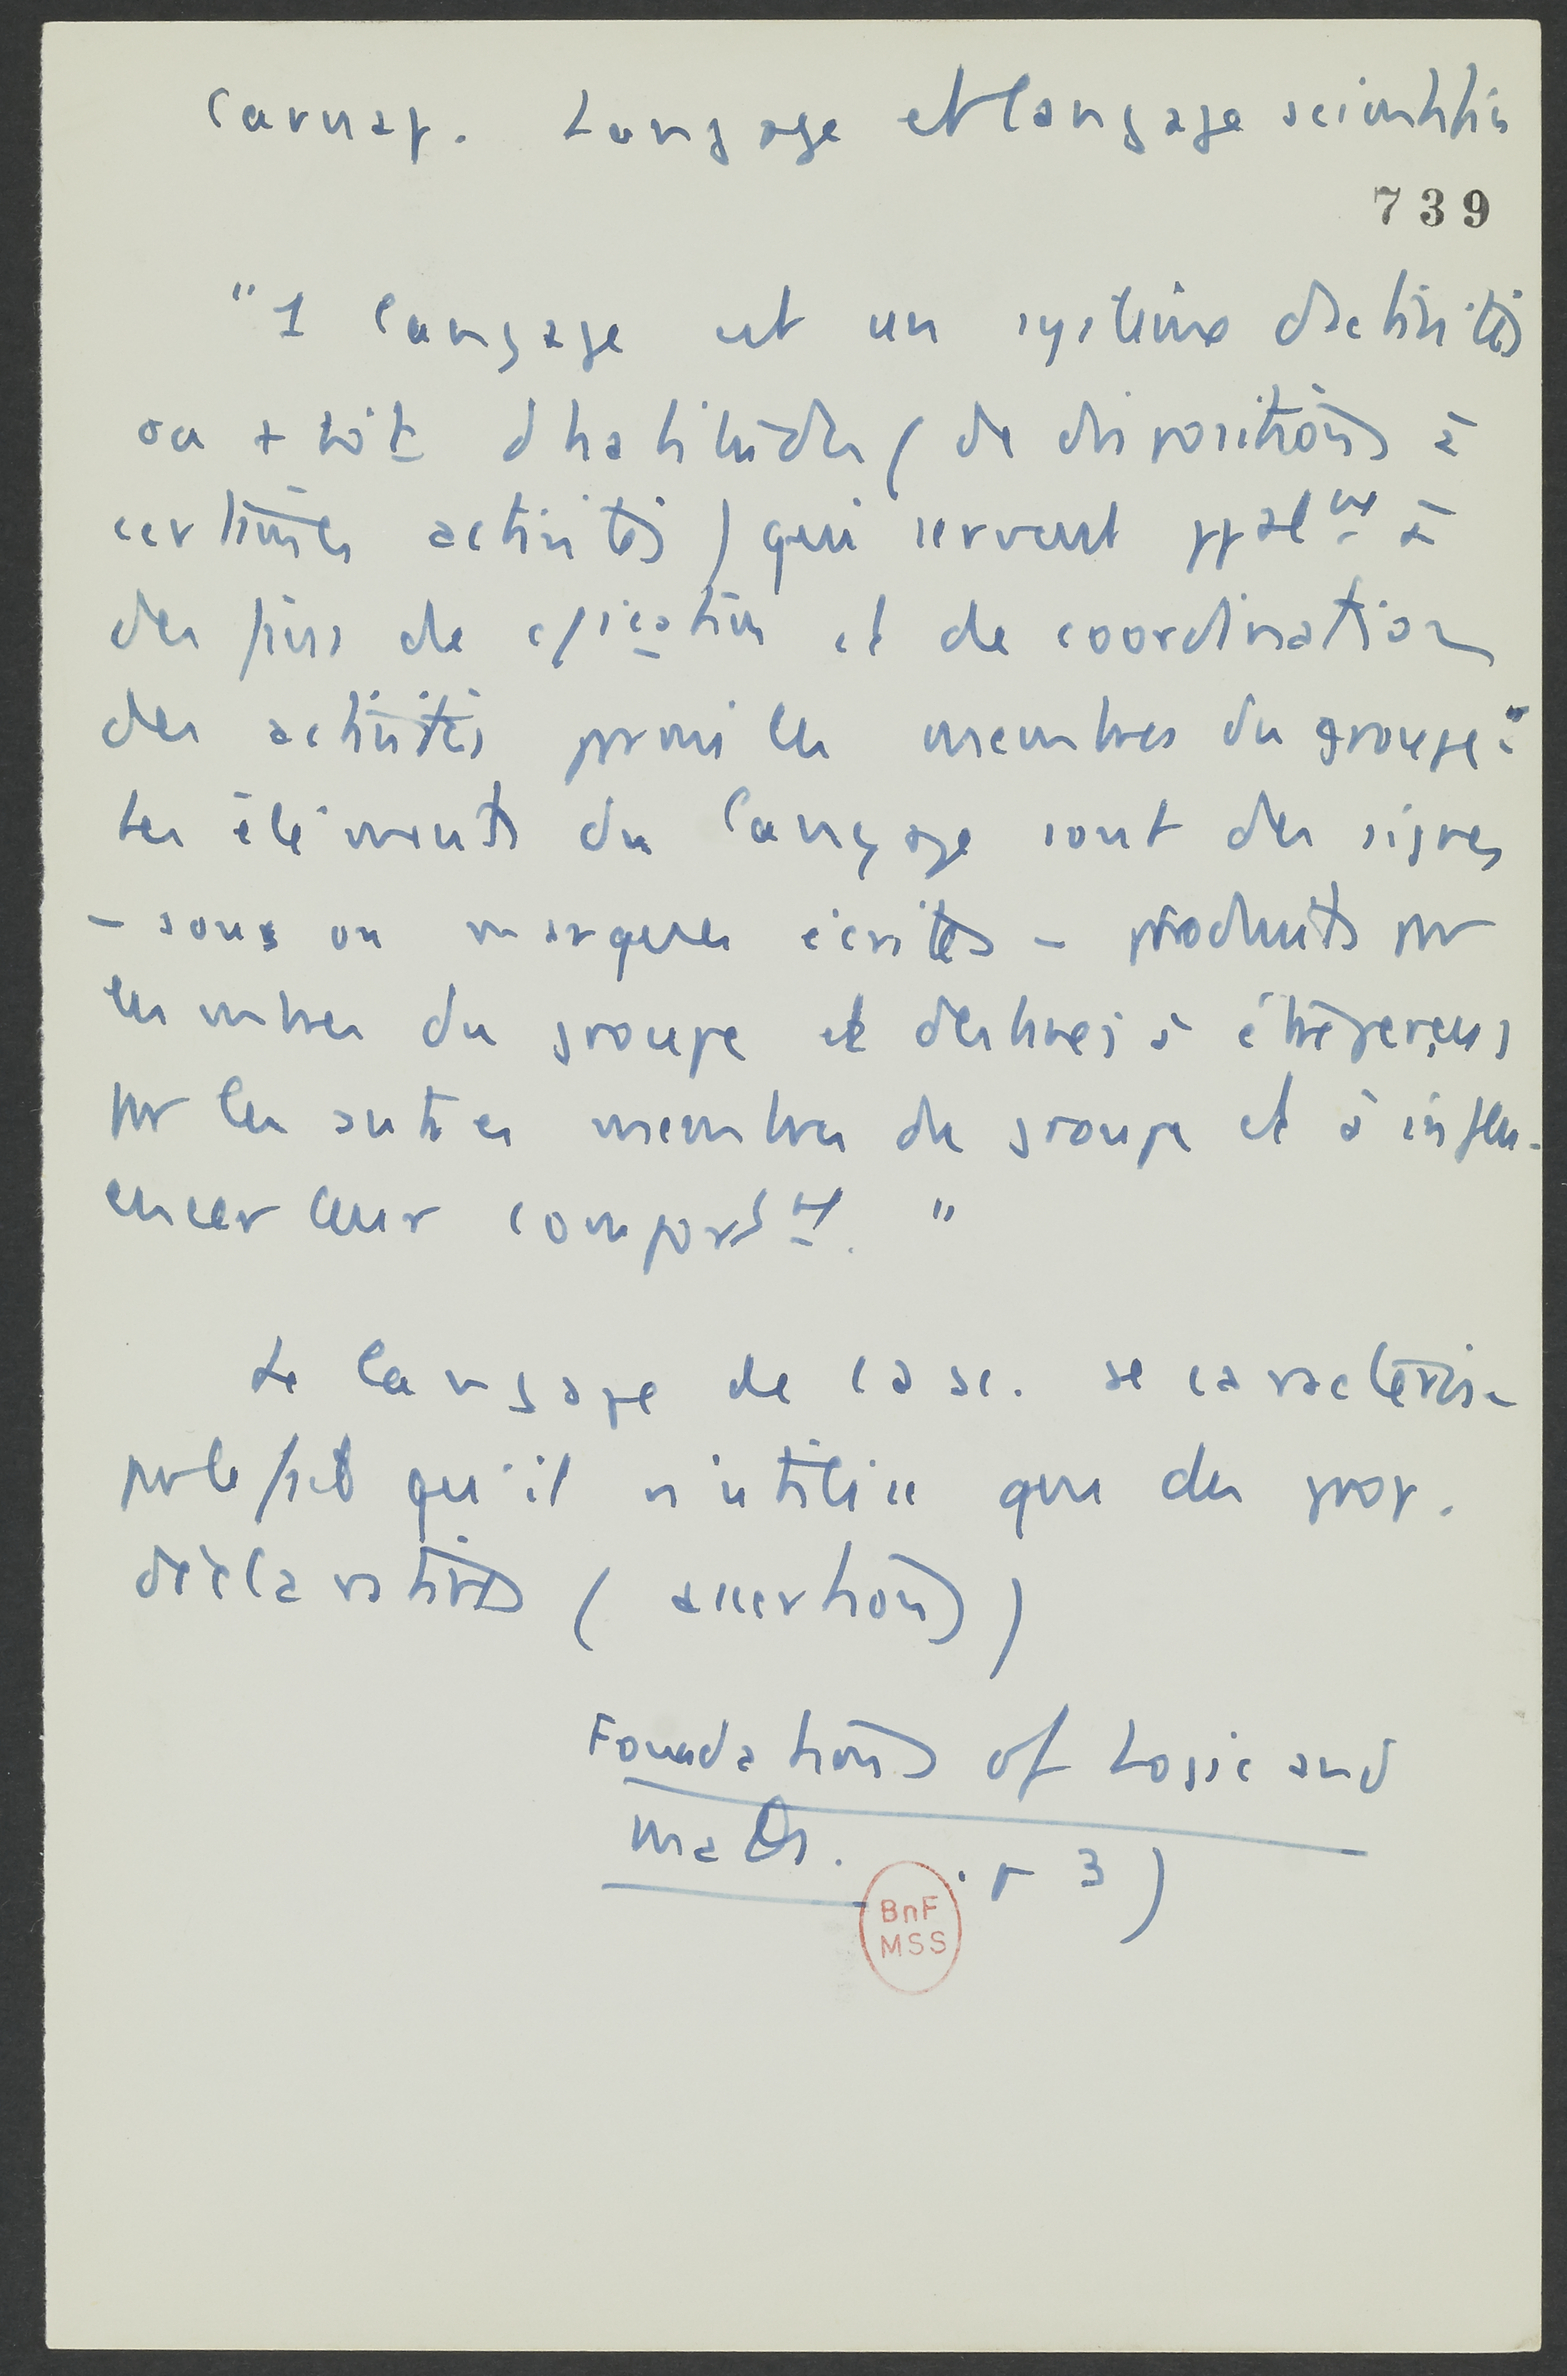 Carnap. Langage et langage scientifiq
739
"1 langage est un système d'activités
ou + tôt d'habitudes (de dispositions à
certaines activités) qui servent ppalmt à
des fins de c/ication et de coordination
des activités parmi les membres du groupe."
Les éléments du langage sont des signes
- sons ou marques écrites - produits par
les mbres du groupe et destinés à être perçus
par les autres membres du groupe et à influ-
encer leur comportmt. "
Le langage de la sc. se caractérise
par le fait qu'il n'utilise que des prop.
déclaratives (assertions)
Foundations of Logic and
Math. . p 3)
BnF
MSS